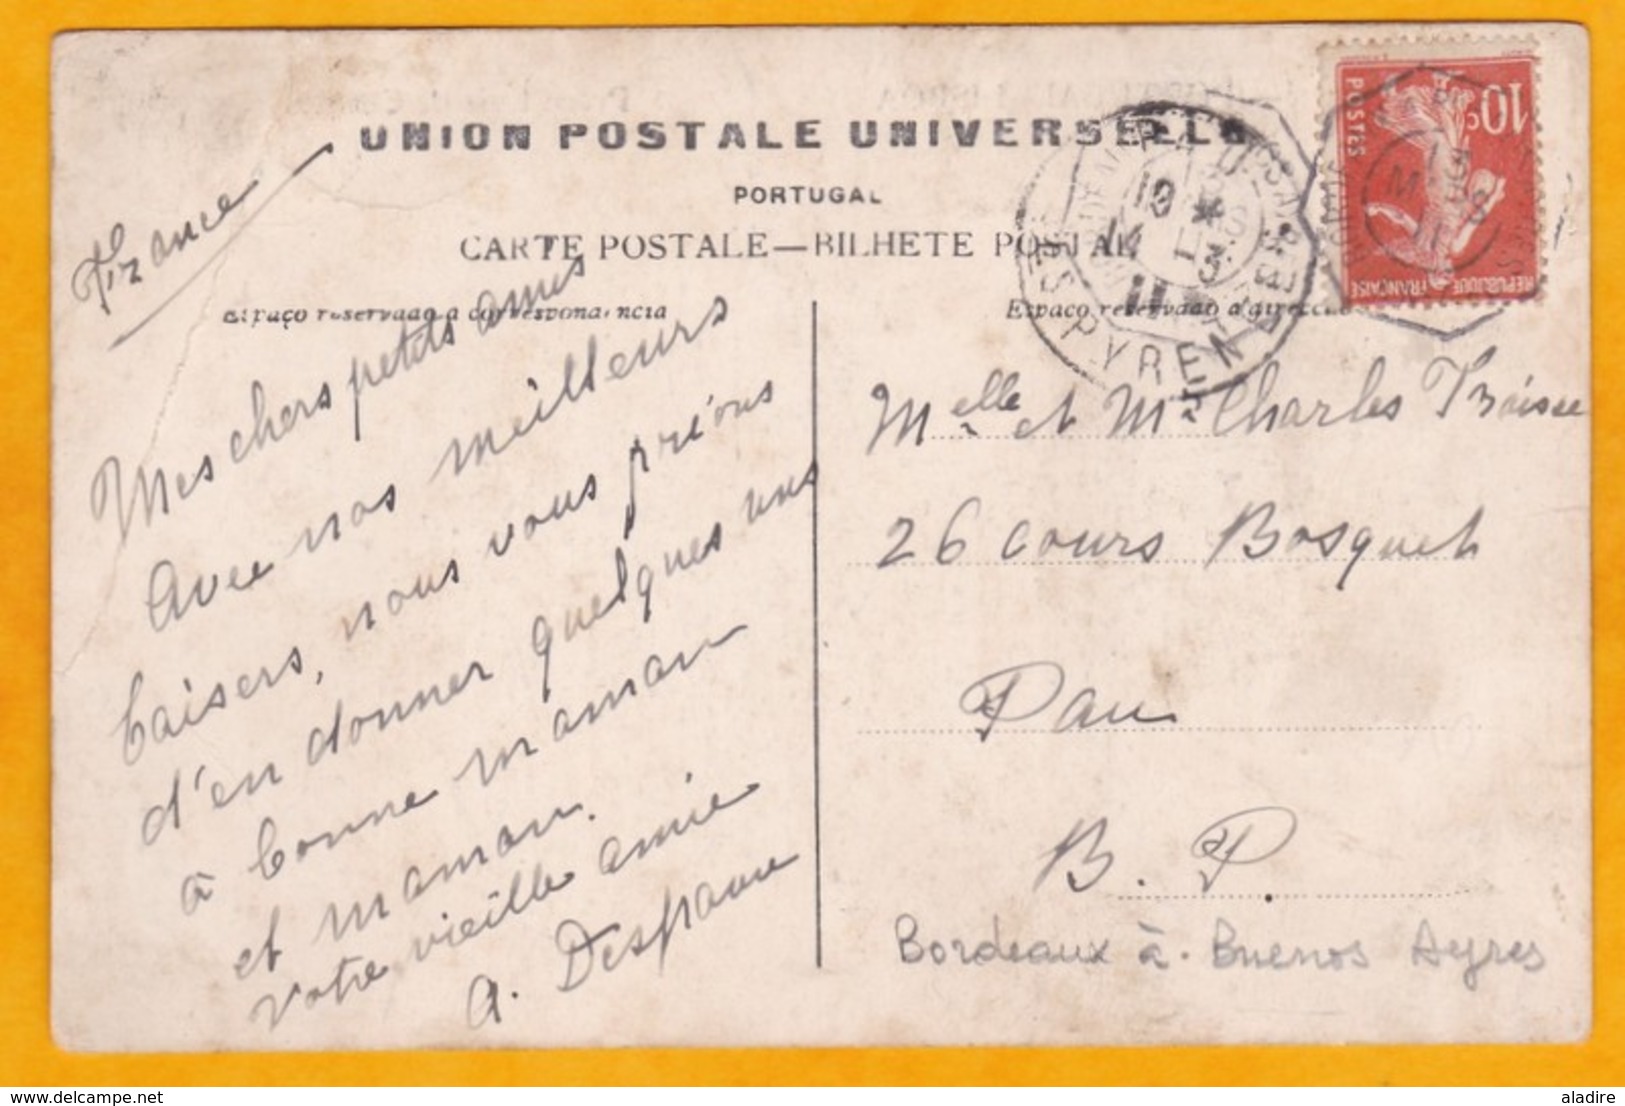 UNION POSTALE UNIVERSELLE
PORTUGAL
CARTE POSTALE—BILHETE POSTAL
Espaço reservado á correspondencia
Espaço reservado á direcção
France
Mes chers petits amis
Avec nos meilleurs
baisers, nous vous prions
d'en donner quelques uns
à bonne maman
et maman.
Votre vieille amie
A. Despaux
Melle et Mr Charles
26 cours Bosquet
Pau
B. P.
Bordeaux à Buenos Ayres
10c
POSTES
REPUBLIQUE FRANÇAISE
13
MARS
11
PAU
BSES PYRENEES
aladire